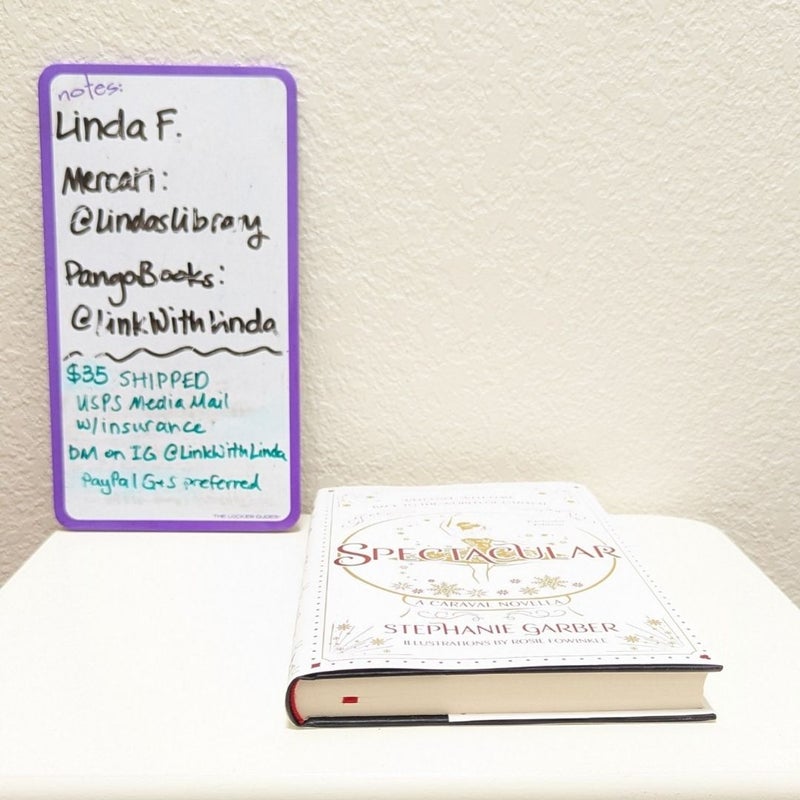 notes:
Linda F.
Mercari:
@lindaslibrary
PangoBooks:
@linkWithLinda
$35 SHIPPED
USPS Media Mail
w/insurance
DM on IG @LinkWithLinda
PayPal G+S preferred
THE LOCKER GUDES
SPECTACULAR
A CARAVAL NOVELLA
STEPHANIE GARBER
ILLUSTRATIONS BY ROSIE FOWINKLE